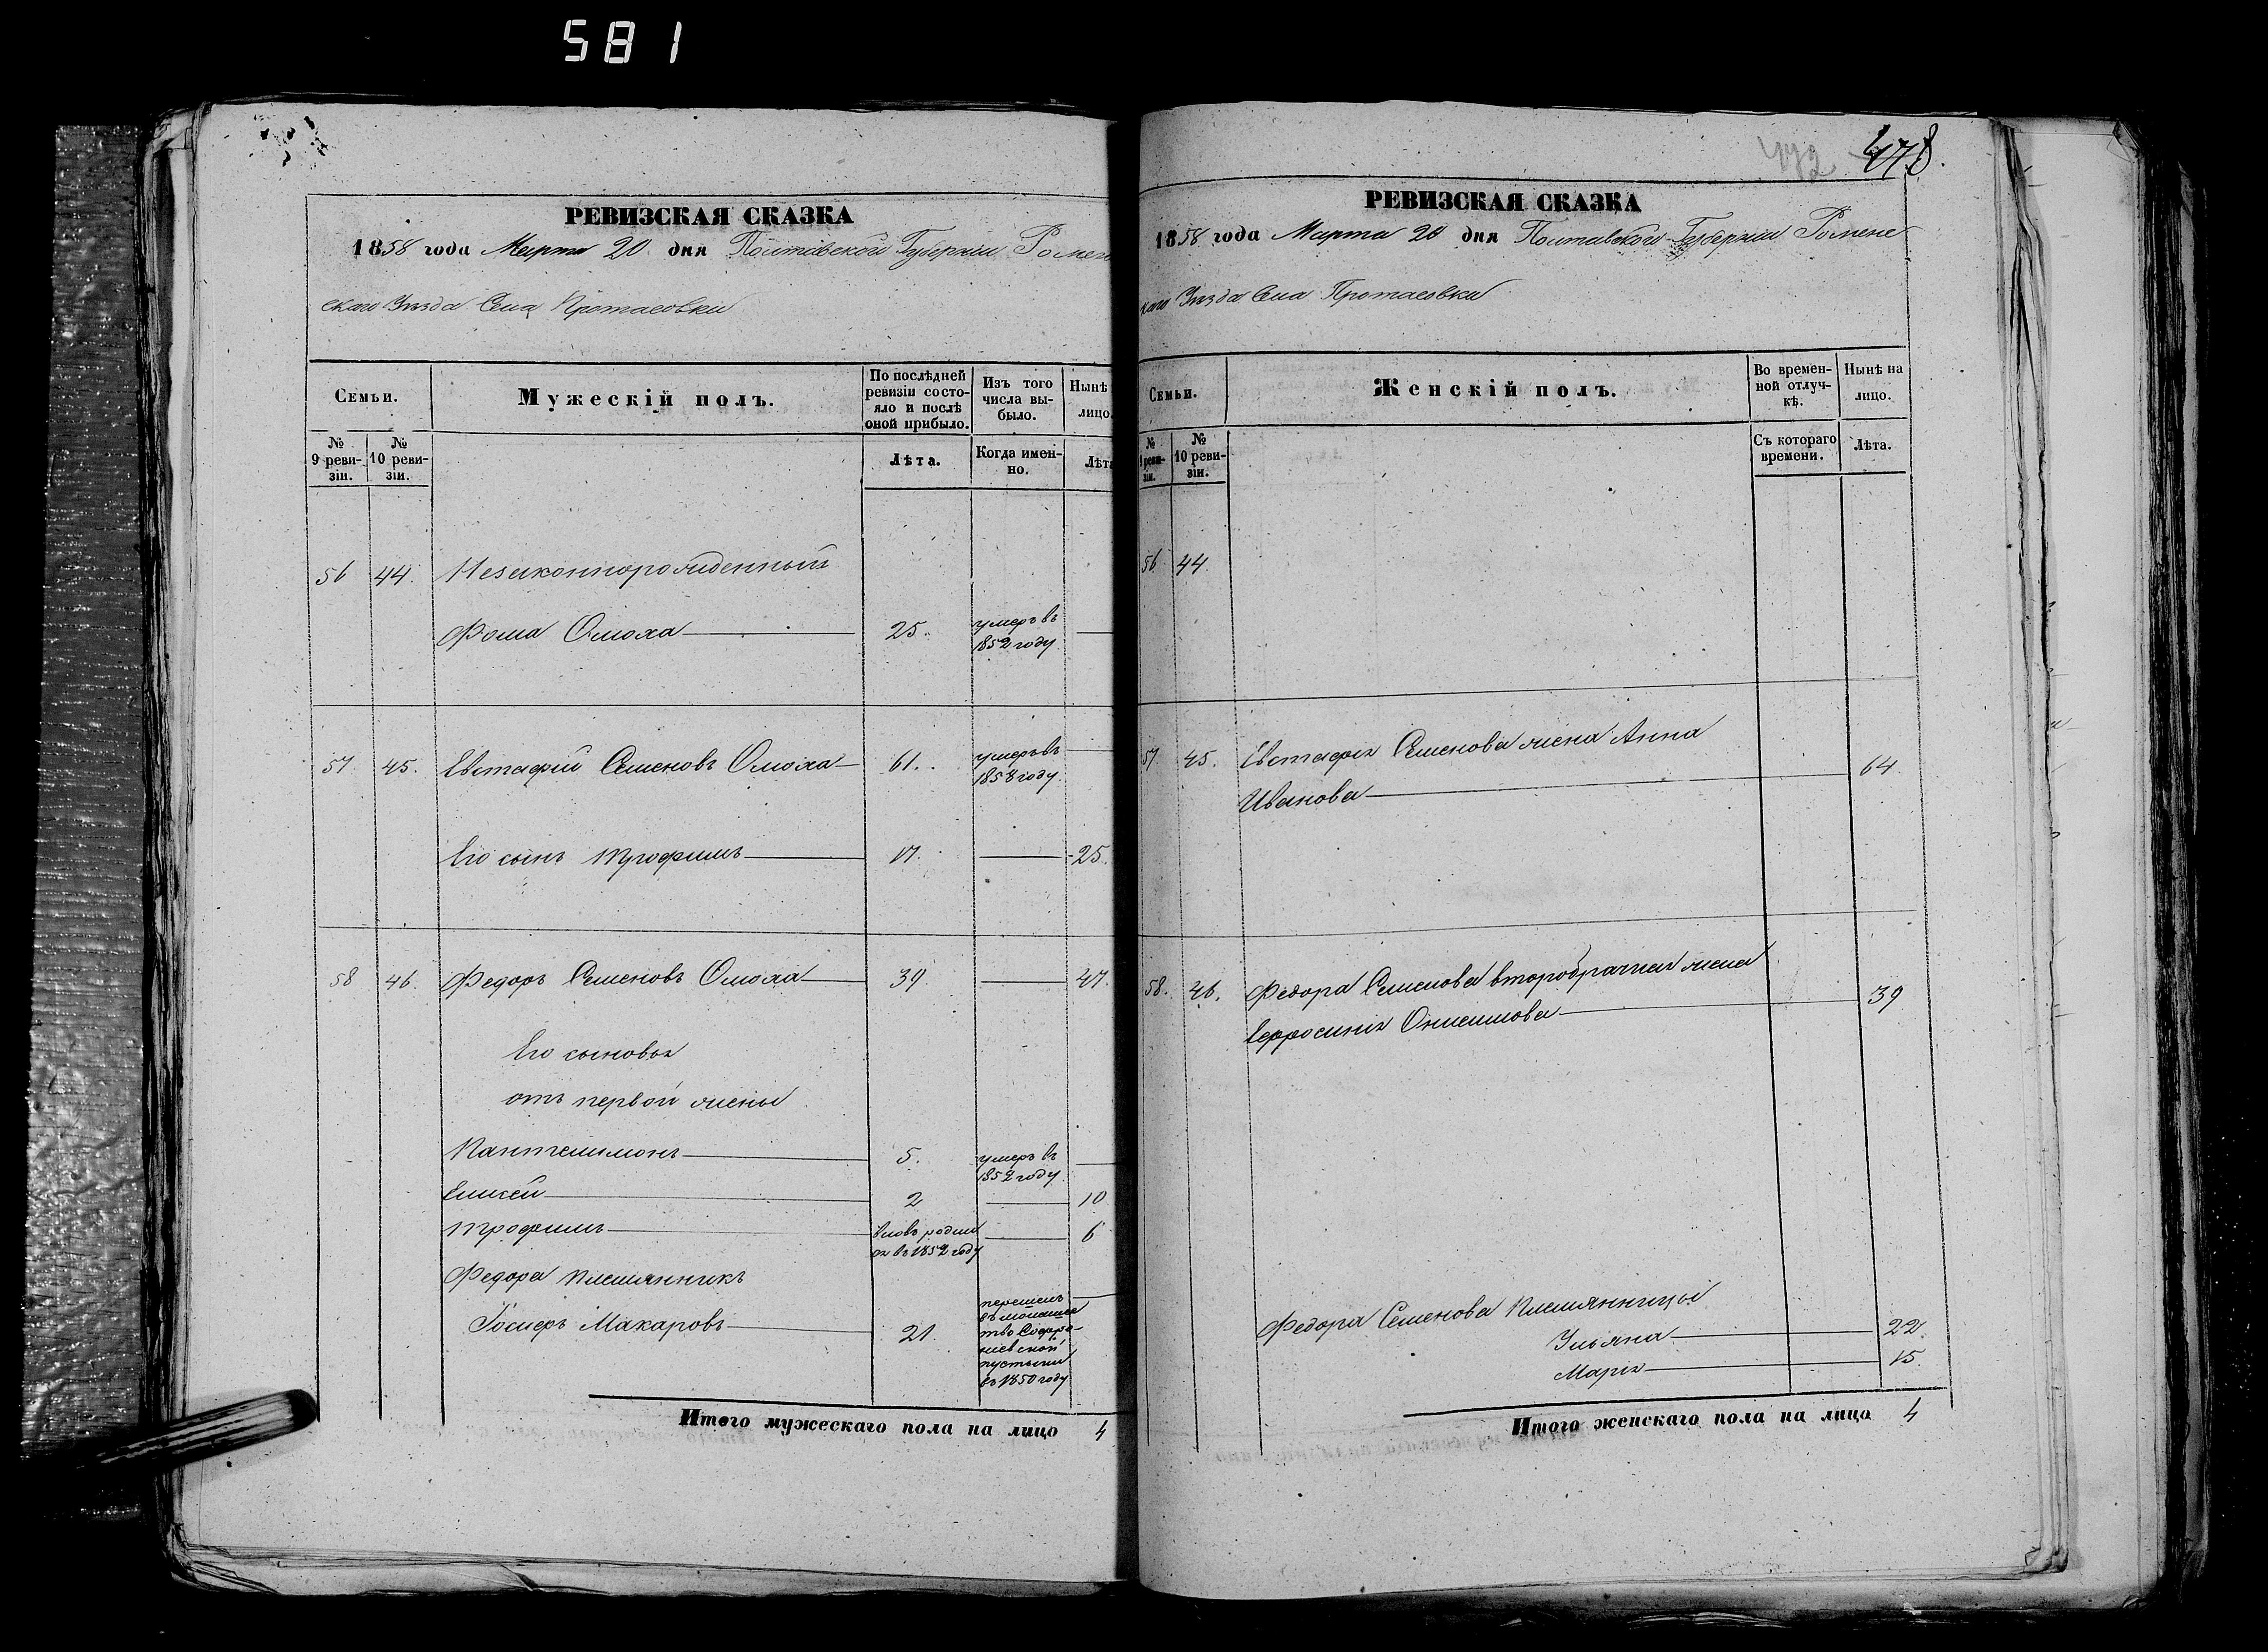 581
РЕВИЗСКАЯ СКАЗКА
1858 года Марта 20 дня Полтавской Губернии Ромен
скаго Уѣзда Села Протасовки
Семьи.
Мужескій полъ.
По послѣдней ревизіи состояло и послѣ оной прибыло.
Изъ того числа выбыло.
Нынѣ
лицо.
№ 9 ревизіи.
№ 10 ревизіи.
Лѣта.
Когда именно.
Лѣта
56 44. Незаконнорожденный
Фома Омоха 25. умеръ въ
1852 году
57 45. Евстафій Семеновъ Омоха 61. умеръ въ
1858 году
Его сынъ Трофимъ 17. 25.
58 46. Федоръ Семеновъ Омоха 39. 47.
Его сыновья
отъ первой жены
Пантелимонъ 5. умеръ въ
1852 году
Елисей 2 10
Трофимъ вновь родил 6
ся въ 1852 году
Федора племянникъ
Макаровъ 21. перешелъ
въ монашес
тво Софро-
ніевской
пустыни
въ 1850 году
Итого мужескаго пола на лицо 4
472
478.
РЕВИЗСКАЯ СКАЗКА
1858 года Марта 20 дня Полтавской Губерніи Роменс
каго Уѣзда Села Протасовки
Семьи.
Женскій полъ.
Во временной отлучкѣ.
Нынѣ на лицо.
№ 9 ревизіи.
№ 10 ревизіи.
Съ котораго времени.
Лѣта.
56. 44.
57 45. Евстафія Семенова жена Анна
Иванова 64
58. 46. Федора Семенова второбрачная жена
Ефросинія Онисимова 39
Федора Семенова племянницы
Ульяна 22.
Марія 15.
Итого женскаго пола на лицо 4